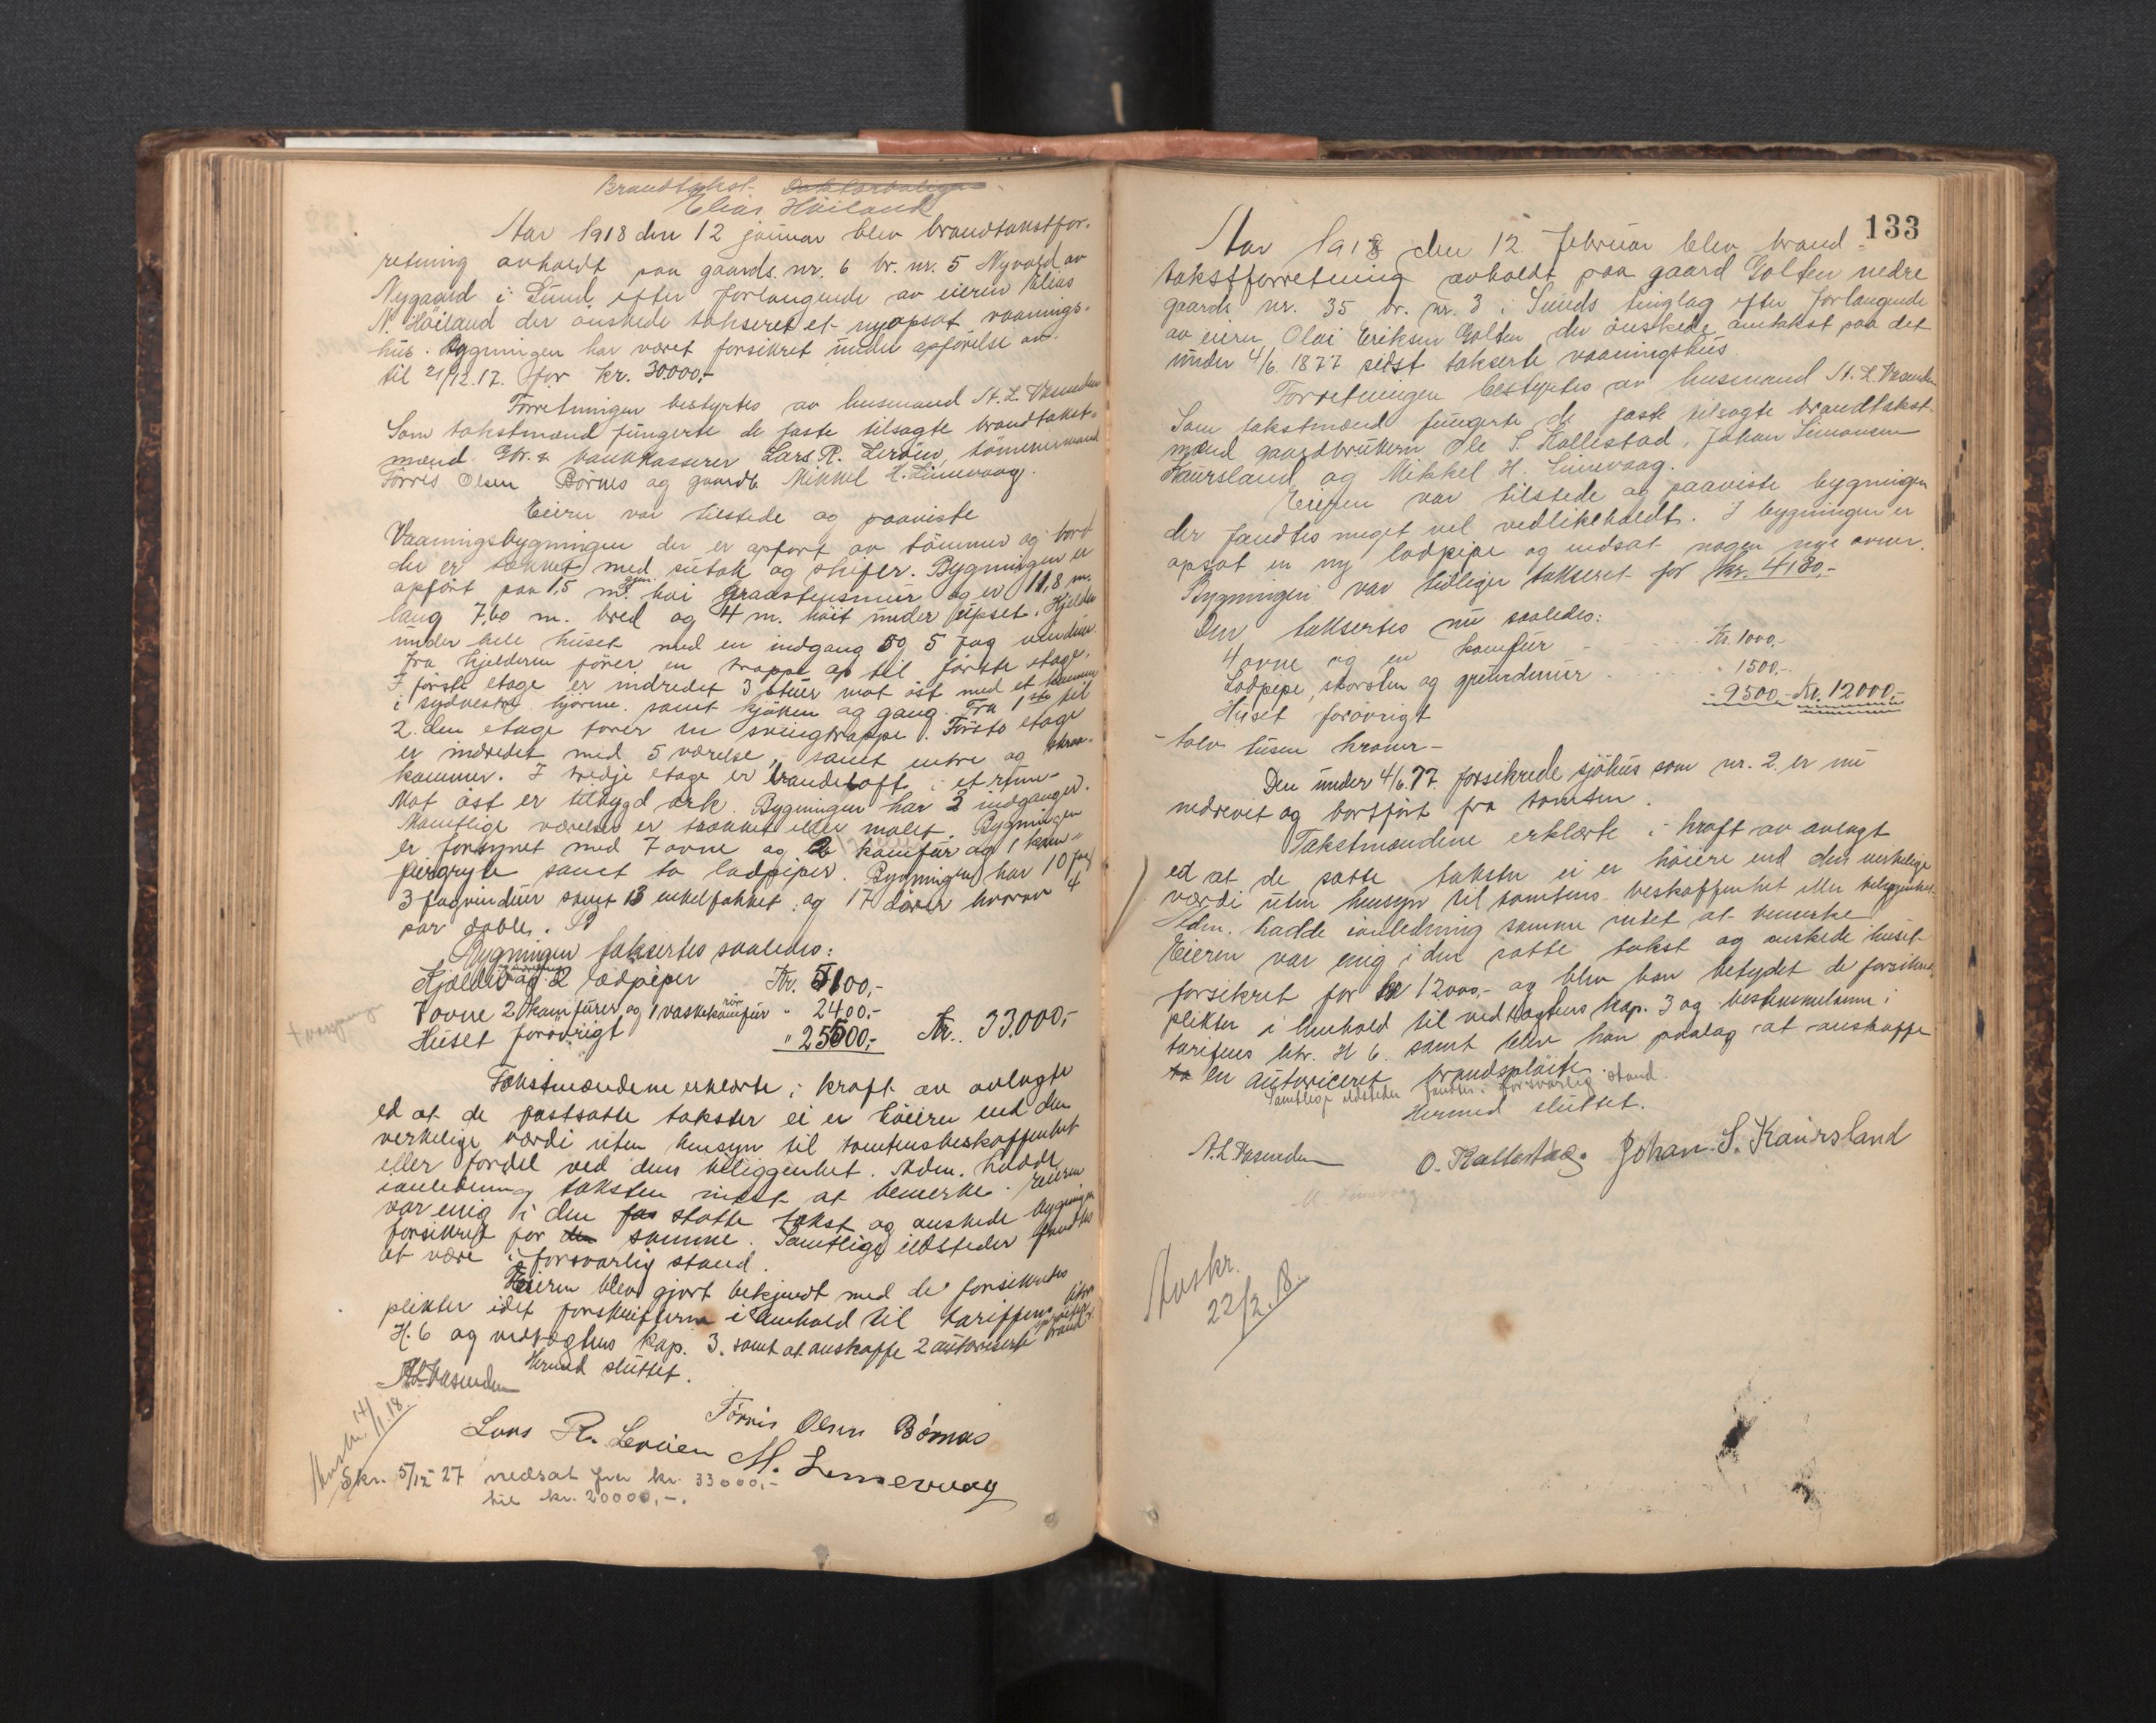 Brandtakst. Doktorboligen.
Elias Höiland
Aar 1918 den 12 januar blev brandtakstfor-
retning avholdt paa gaards. nr. 6 br. nr. 5 Nyvold av
Nygaard i Sund, efter forlangende av eieren Elias
N. Höiland der önskede takseret et nyopsat vaanings-
hus. Bygningen har været forsikret under opförelse an-
til 21/12.17. for kr. 30.000,-
Forretningen bestyrtes av lensmand A. L. Vasenden
Som takstmænd fungerte de faste tilsagte brandtakst-
mænd. Gbr. & bankkasserer Lars R. Leröen, tömmermand
Törris Olsen Börnes og gaardb. Mikkel H. Limevaag.
Eieren var tilstede og paaviste
Vaaningsbygningen der er opfört av tömmer og bord
der er tækket med sutak og skifer. Bygningen er
opfört paa 1,5 m. gjen. höi graastensmur og er 11,8 m.
lang 7,60 m. bred og 4 m. höit under upset. Kjelder
under hele huset med en indgang og 5 fag vinduer.
Fra kjelderen förer en trappe op til förste etage.
I förste etage er indredet 3 stuer mot öst med et kammer
i sydvestre hjörne. samt kjöken og gang. Fra 1ste til
2.den etage förer en svingtrappe. Förste etage
er indredet med 5 værelse, samt entre og skraa-
kammer. I tredje etage er brandeloft i et rum-
Mot öst er tilbygd ark. Bygningen har 3 indganger.
Samtlige værelser er trækket eller malet. Bygningen
er forsynet med 7 ovne og 2 komfur og 1 kom-
piergryte samt to lodpiper. Bygningen har 10 fag
3 fagvinduer samt 13 enkelfakket og 17 dörer hvorav 4
par doble.
Bygningen taksertes saaledes:
Kjelder og 2 lodpiper Kr. 5100,-
7 ovne 2 komfurer og 1 vaskekomfur rör " 2400.-
Huset forövrigt " 25500,- Kr. 33.000,-
Takstmændene erklærte i kraft av avlagte
ed at de fastsatte takster ei er höieren end den
verkelige værdi uten hensyn til tomtensbeskaffenhet
eller fordel ved dens beliggenhet. Adm. hadde
ianledning taksten intet at bemerke. Eieren
var enig i den fas satte takst og önskede bygningen
forsikret for den samme. Samtlige ildsteder fandtes
at være i forsvarlig stand.
Eieren blev gjort bekjendt med de forsikredes
plikter idet forskrifterne i henhold til tariffens litr.
H. 6 og vedtægtens kap. 3. samt at anskaffe 2 autoriserte brand-
spröiter.
Hermed sluttet.
A. L. Vasenden
Törris Olsen Börnes
Lars R. Leröen M. Limevaag
Avskr. 14/1.18.
Skr. 5/12 27 nedsat fra kr. 33000,-
til kr. 20000,-.
133
Aar 1918 den 12 februar blev brand-
takstforretning avholdt paa gaard Golten nedre
gaards nr. 35 br. nr. 3 i Sunds tinglag efter forlangende
av eieren Olai Eriksen Golten der önskede omtakst paa det
under 4/6. 1877 sidst takserte vaaningshus.
Forretningen bestyrtes av lensmand A. L. Vasenden
Som takstmænd fungerte de faste tilsagte brandtakst-
mænd gaardbrukern Ole S. Kallestad, Johan Simonsen
Kaursland og Mikkel H. Limevaag.
Eieren var tilstede og paaviste bygningen
der fandtes meget vel vedlikeholdt. I bygningen er
opsat en ny lodpipe og indsat nogen nye ovner.
Bygningen var tidliger takseret for kr. 4130,-
Den taksertes nu saaledes:
4 ovne og en komfur - Kr. 1000,-
Lodpipe, skorsten og grundmur . . . . . " 1500,-
Huset forövrigt - 9500 - Kr. 12000,-
- tolv tusen kroner -
Den under 4/6.77. forsikrede sjöhus som nr. 2. er nu
nedrevet og bortfört fra tomten.
Takstmændene erklærte i kraft av avlagt
ed at de satte takster ei er höiere end den verkelige
værdi uten hensyn til tomtens beskaffenhet eller beliggenhet.
Adm. hadde ianledning samme intet at bemerke
Eieren var enig i den satte takst og önskede huset
forsikret for kr 12000,- og blev han betydet de forsikredes
plikter i henhold til vedtægtens kap. 3 og bestemmelserne i
tarifens litr. H 6. samt blev han paalag at anskaffe
to en autoriceret brandspröite.
Samtlige ildsteder fandtes i forsvarlig stand.
Hermed sluttet.
A. L. Vasenden O. Kallestad. Johan. S. Kaursland
M. Limevaag
Avskr.
22/2.18.